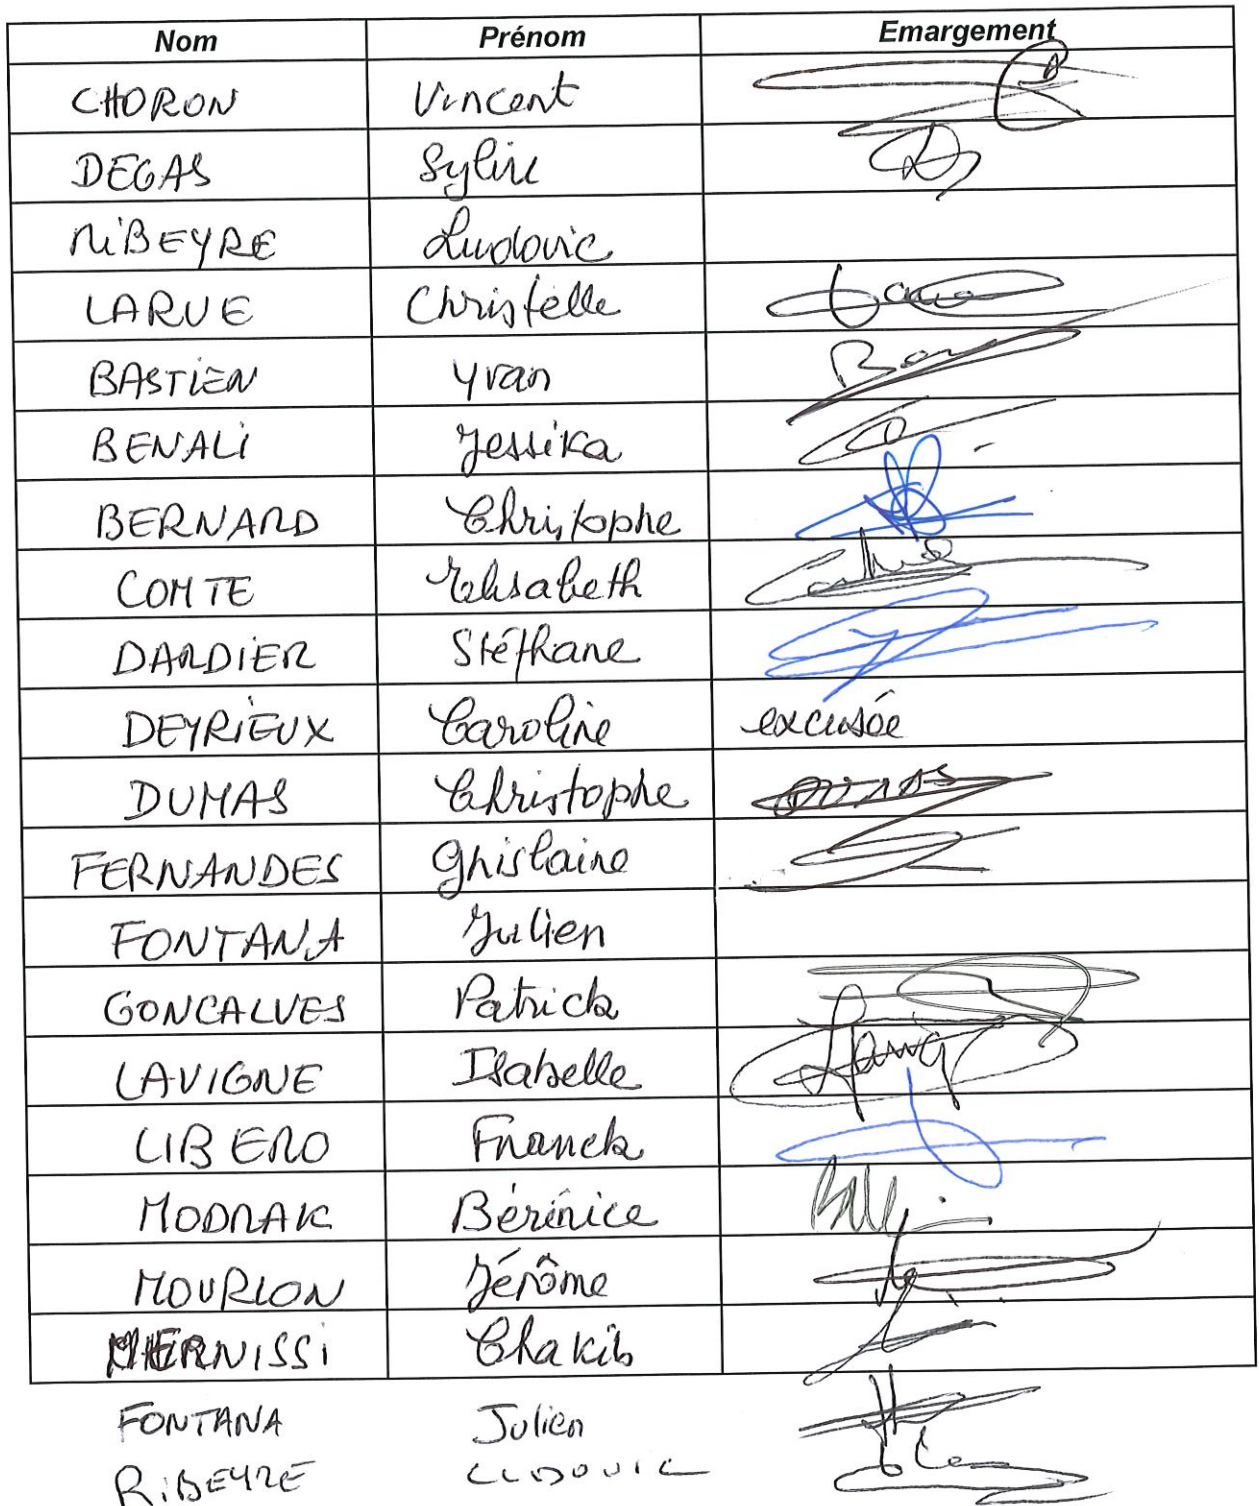 Nom Prénom Emargement
CHORON Vincent
DEGAS Sylvie
RiBEYRE Ludovic
LARUE Christelle
BASTiEN Yvan
BENALi Jessika
BERNARD Christophe
COMTE Elisabeth
DARDiER Stéphane
DEYRiEUX Caroline excusée
DUMAS Christophe DUMAS
FERNANDES Ghislaine
FONTANA Julien
GONCALVES Patrick
LAVIGNE Isabelle
LIBERO Franck
MODRAK Bérénice
MOURLON Jérôme
MERNISSi Chakib
FONTANA Julien
RiBEYRE LUDOVIC